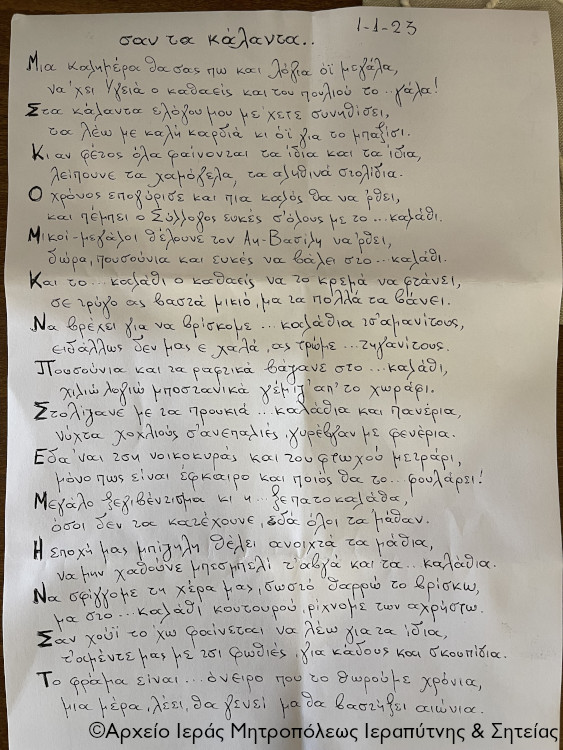 σαν τα κάλαντα..
1-1-23
Μια καλημέρα θα σας πω και λόγια όϊ μεγάλα,
να 'χει Υγειά ο καθαείς και του πουλιού το ..γάλα!
Στα κάλαντα ελόγου μου με 'χετε συνηθίσει,
τα λέω με καλή καρδιά κι όϊ για το μπαξίσι.
Κι αν φέτος όλα φαίνονται τα ίδια και τα ίδια,
λείπουνε τα χαμόγελα, τα αληθινά στολίδια.
Ο χρόνος επογύρισε και πια καλός θα να 'ρθει,
και πέμπει ο Σύλλογος ευκές σ' όλους με το ... καλάθι.
Μικοί-μεγάλοι θέλουνε τον Αη-Βασίλη να 'ρθει,
δώρα, πουσούνια και ευκές να βάλει στο ...καλάθι.
Και το ... καλάθι ο καθαείς να το κρεμά να φτάνει,
σε τρύγο ας βαστά μικιό, μα τα πολλά τα βάνει.
Να βρέχει για να βρίσκομε ... καλάθια τσ' αμανίτους,
ειδάλλως δεν μας ε χαλά, ας τρώμε ...τηγανίτους.
Πουσούνια και τα ραφτικά βάγανε στο ...καλάθι,
χιλιώ λογιώ μποστανικά γέμιζ' απ' το χωράφι.
Στολίζανε με τα προυκιά ...καλάθια και πανέρια,
νύχτα χοχλιούς σ' ανεπαλιές, γυρέβγαν με φενέρια.
Εδά 'ναι τση νοικοκυράς και του φτωχού μετράρι,
μόνο πως είναι έφκαιρο και ποιός θα το ..φουλάρει!
Μεγάλο ξεγιβέντισμα κι η ...ξεπατοκαλάθα,
όσοι δεν τα κατέχουνε, εδά όλοι τα μάθαν.
Η εποχή μας μπίζηλη θέλει ανοιχτά τα μάθια,
να μην χαθούνε μπεσμπελί τ' αβγά και τα.. καλάθια.
Να σφίγγομε τη χέρα μας, σωστό θαρρώ το βρίσκω,
μα στο ...καλάθι κουτουρού, ρίχνομε των αχρήστω.
Σαν χούϊ το χω φαίνεται να λέω για τα ίδια,
τσ' αμέντε μας με τσι φωθιές, για κάδους και σκουπίδια.
Το φράμα είναι ...όνειρο που το θωρούμε χρόνια,
μια μέρα, λέει, θα γενεί μα θα βαστήξει αιώνια.
©Αρχείο Ιεράς Μητροπόλεως Ιεραπύτνης & Σητείας